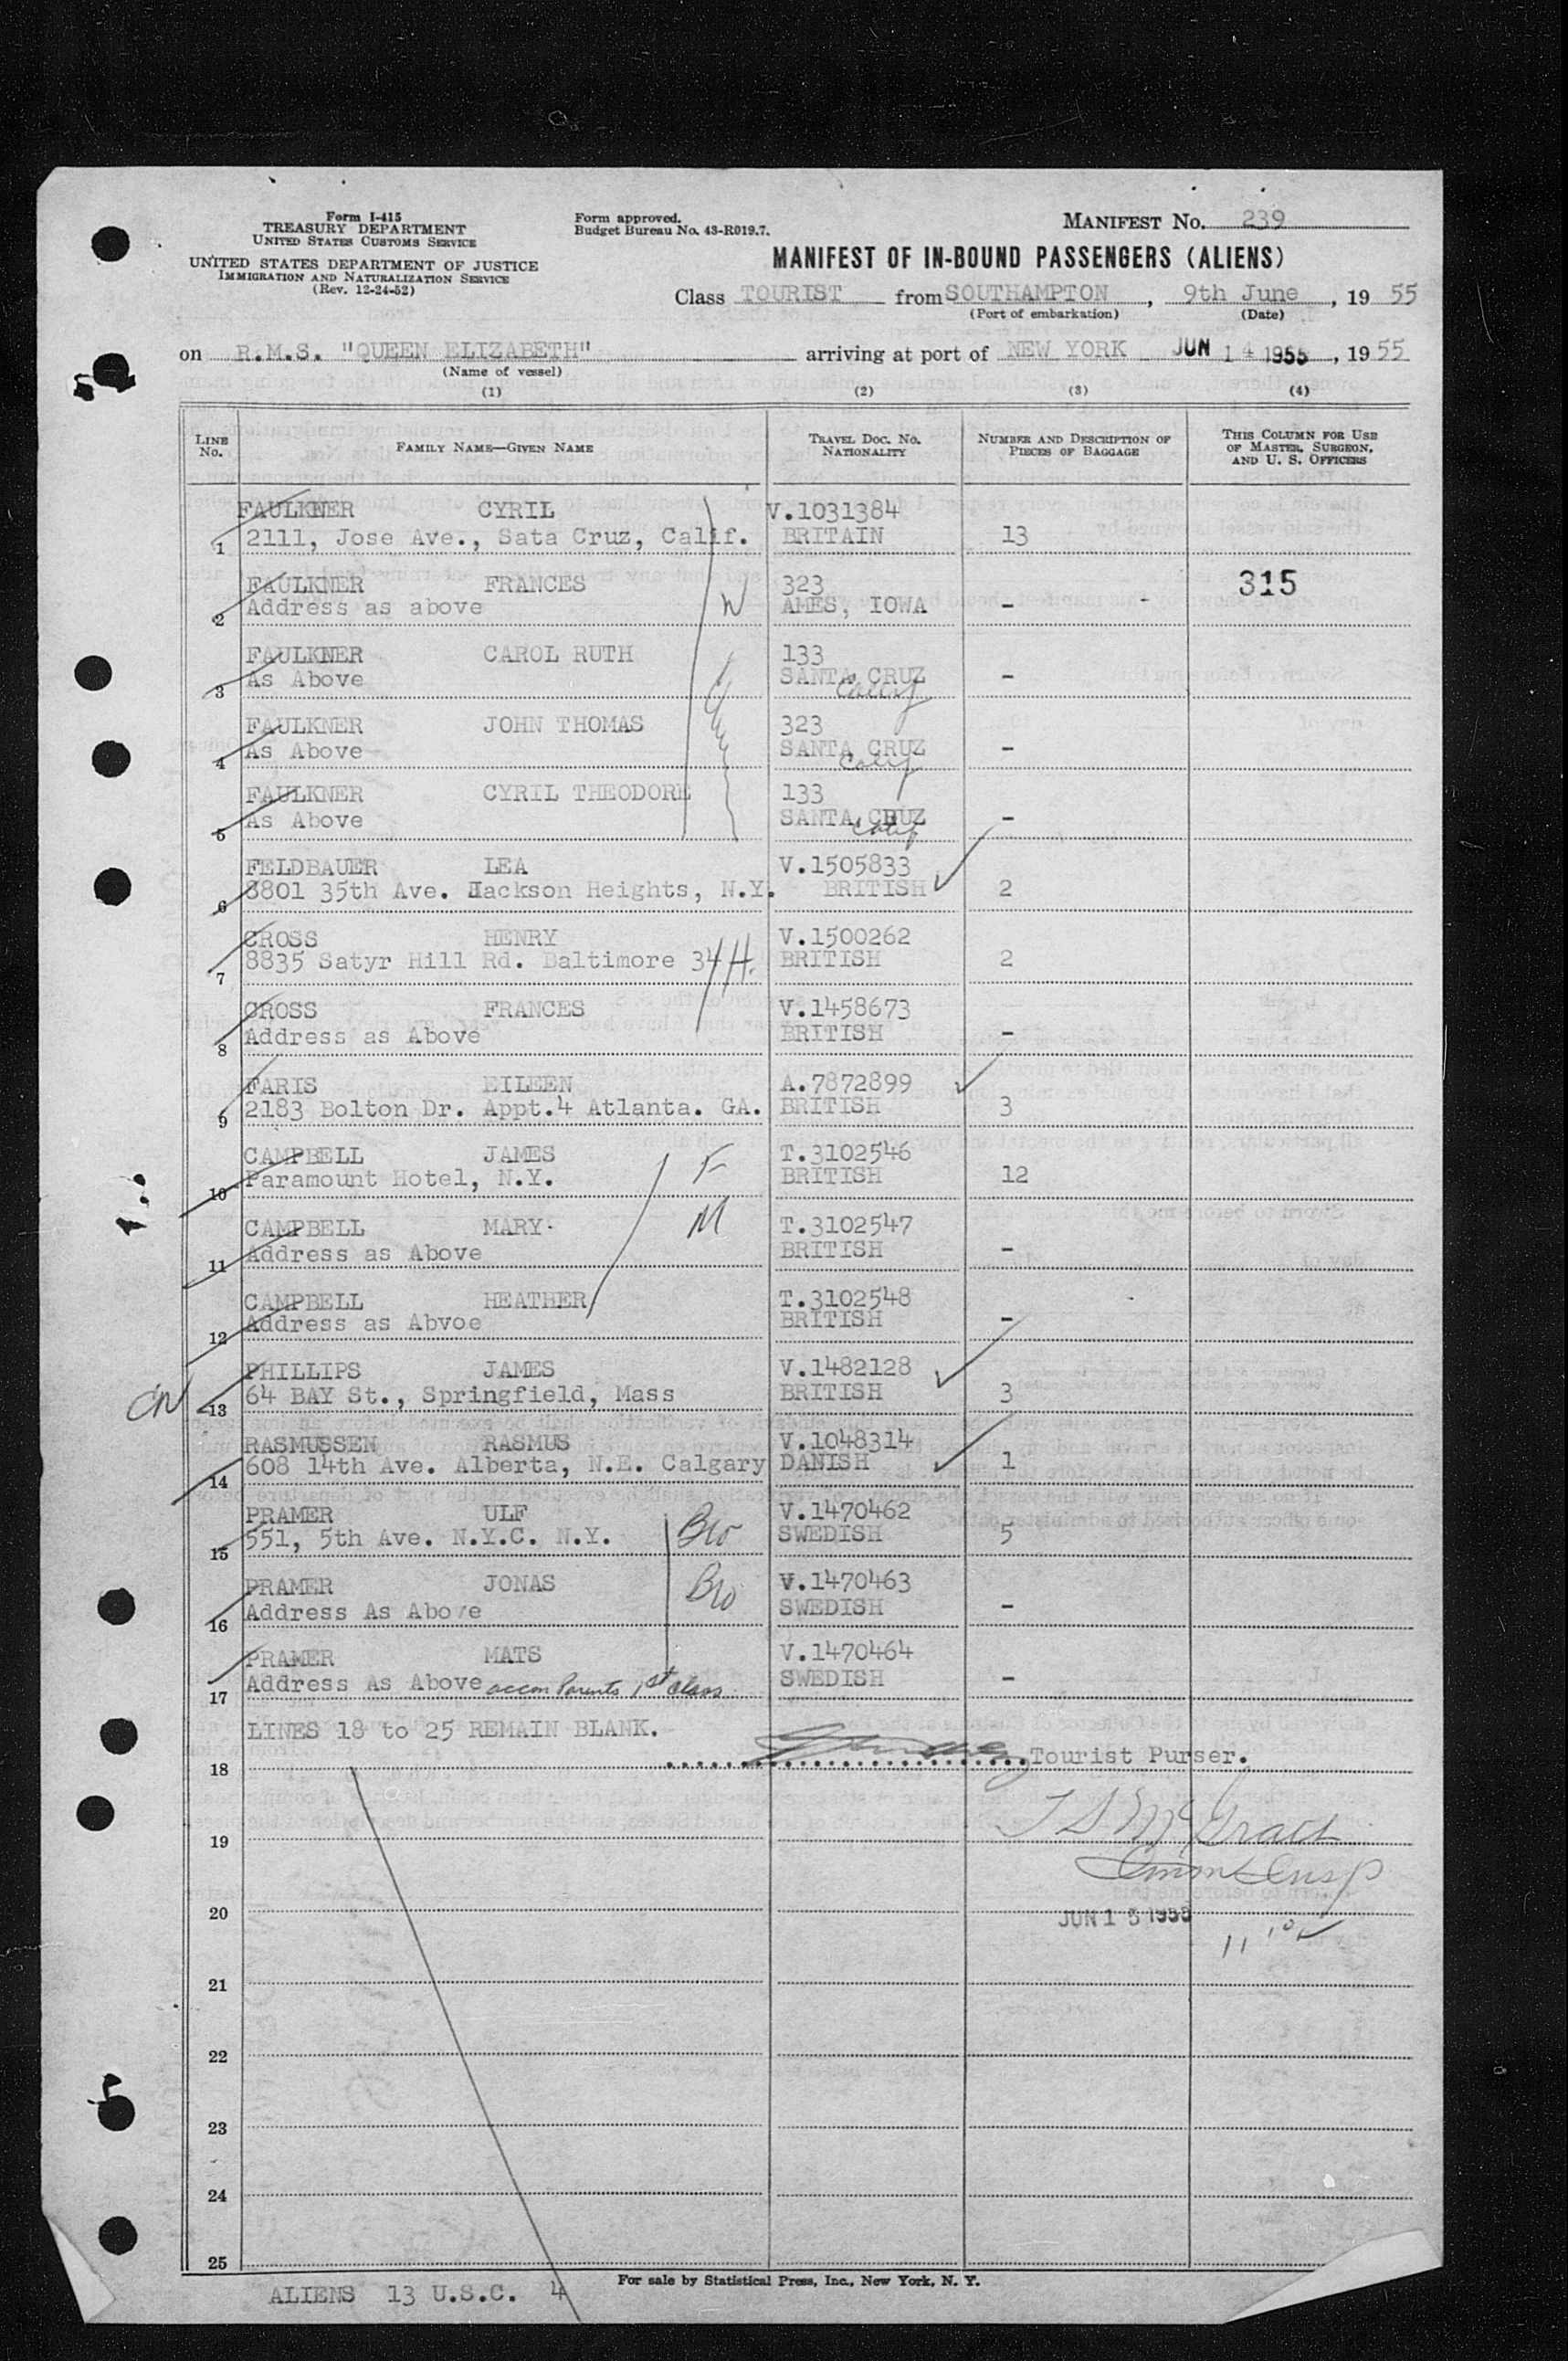 Form I-415
TREASURY DEPARTMENT
UNITED STATES CUSTOMS SERVICE
UNITED STATES DEPARTMENT OF JUSTICE
IMMIGRATION AND NATURALIZATION SERVICE
(Rev. 12-24-52)
Form approved.
Budget Bureau No. 43-R019.7.
MANIFEST NO. 239
MANIFEST OF IN-BOUND PASSENGERS (ALIENS)
Class TOURIST from SOUTHAMPTON, 9th June, 19 55
(Port of embarkation) (Date)
on R.M.S. "QUEEN ELIZABETH" arriving at port of NEW YORK JUN 14 1955, 19 55
(Name of vessel)
(1) (2) (3) (4)
LINE NO. FAMILY NAME—GIVEN NAME TRAVEL DOC. NO. NATIONALITY NUMBER AND DESCRIPTION OF PIECES OF BAGGAGE THIS COLUMN FOR USE OF MASTER, SURGEON, AND U. S. OFFICERS
FAULKNER CYRIL V.1031384
1 2111, Jose Ave., Sata Cruz, Calif. BRITAIN 13
FAULKNER FRANCES 323 315
2 Address as above W AMES, IOWA -
FAULKNER CAROL RUTH 133
3 As Above SANTA CRUZ Calif -
FAULKNER JOHN THOMAS 323
4 As Above SANTA CRUZ Calif -
FAULKNER CYRIL THEODORE 133
5 As Above SANTA CRUZ Calif -
FELDBAUER LEA V.1505833
6 8801 35th Ave. Jackson Heights, N.Y. BRITISH 2
CROSS HENRY V.1500262
7 8835 Satyr Hill Rd. Baltimore 34 H. BRITISH 2
CROSS FRANCES V.1458673
8 Address as Above BRITISH -
FARIS EILEEN A.7872899
9 2183 Bolton Dr. Appt.4 Atlanta. GA. BRITISH 3
CAMPBELL JAMES F T.3102546
10 Paramount Hotel, N.Y. BRITISH 12
CAMPBELL MARY. M T.3102547
11 Address as Above BRITISH -
CAMPBELL HEATHER T.3102548
12 Address as Abvoe BRITISH -
PHILLIPS JAMES V.1482128
CN 13 64 BAY St., Springfield, Mass BRITISH 3
RASMUSSEN RASMUS V.1048314
14 608 14th Ave. Alberta, N.E. Calgary DANISH 1
PRAMER ULF V.1470462
15 551, 5th Ave. N.Y.C. N.Y. Bro SWEDISH 5
PRAMER JONAS V.1470463
16 Address As Above Bro SWEDISH -
PRAMER MATS V.1470464
17 Address As Above accom Parents 1st Class SWEDISH -
LINES 18 to 25 REMAIN BLANK.
18 Tourist Purser.
19 T S McGrath
Imm Insp
20 JUN 15 1955
21
22
23
24
25
For sale by Statistical Press, Inc., New York, N. Y.
ALIENS 13 U.S.C. 4